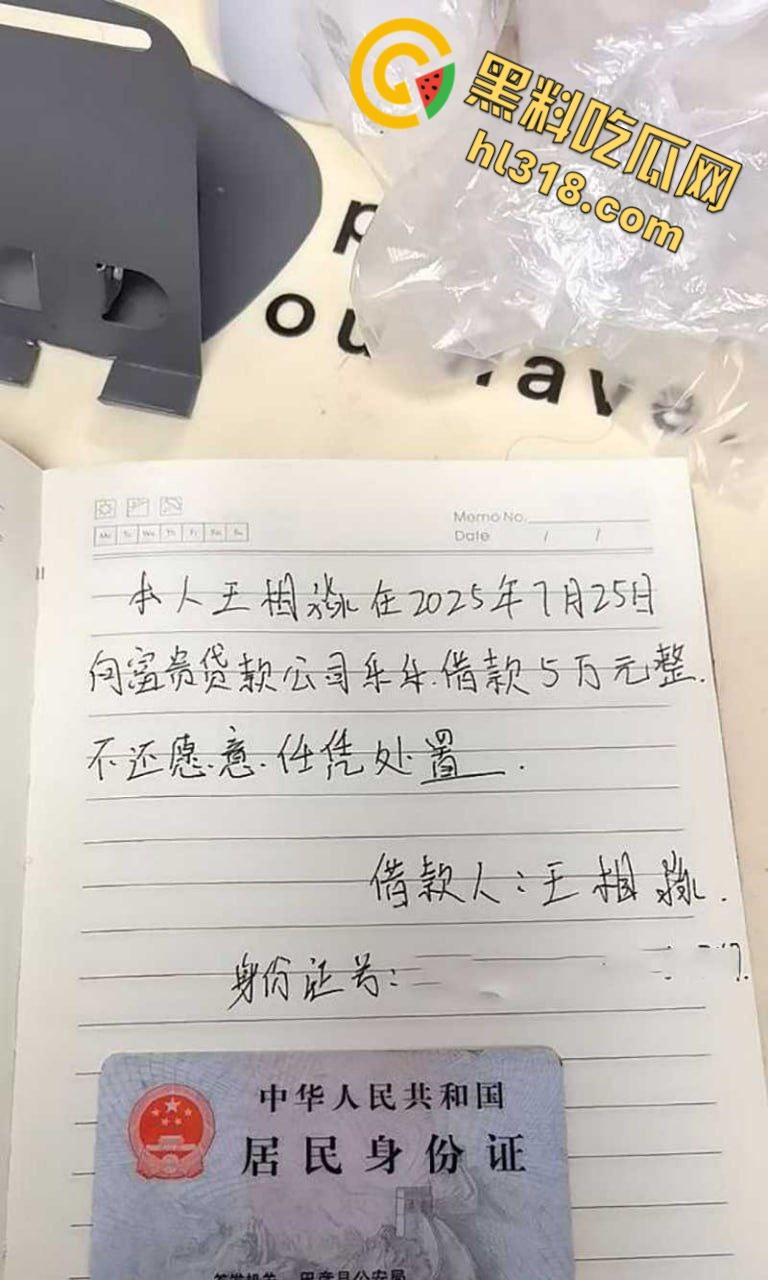 黑料吃瓜网
hl318.com
Memo No.
Date / /
Mo Tu We Th Fr Sa Su
本人王相淼在2025年7月25日
向富贵贷款公司乐乐.借款5万元整.
不还愿意.任凭处置.
借款人:王相淼.
身份证号:
中华人民共和国
居民身份证